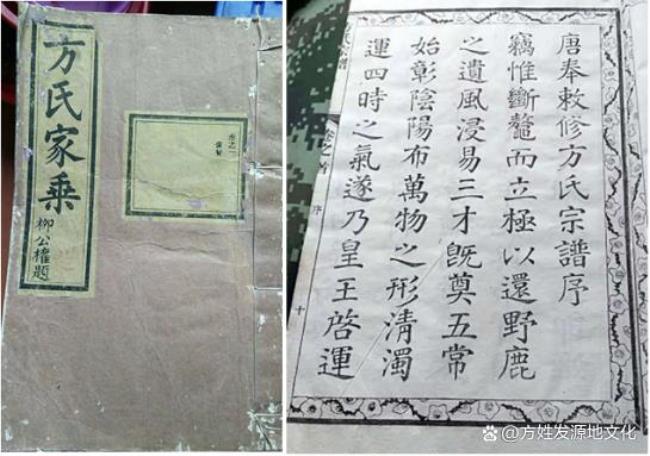 方氏家乘
柳公權題
卷之一
唐奉敕修方氏宗譜序
竊惟斷鼇而立極以還野鹿
之遺風浸易三才旣奠五常
始彰陰陽布萬物之形清濁
運四時之氣遂乃皇王啓運
卷之首
序
十
@方姓发源地文化